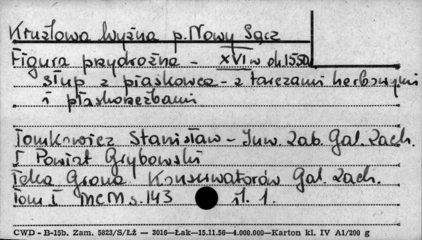 Kruzlowa Wyżna p. Nowy Sącz
Figura przydrożna - XVI w ok. 1550
słup z piaskowca - z tarczami herbowymi
i płaskorzeźbami
Tomkowicz Stanisław - Inw. Zab. Gal. Zach.
I Powiat Grybowski
Teka Grona Konserwatorów Gal. Zach.
Tom I MCM s. 143 il. 1.
CWD - B-15b. Zam. 5823/S/Łż — 3016—Łak—15.11.56—4.000.000—Karton kl. IV A1/200 g